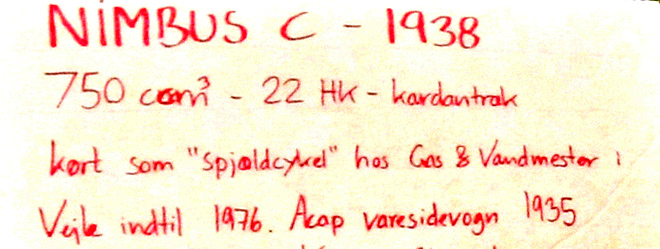 NIMBUS C - 1938
750 ccm³ - 22 HK - kardantræk
kørt som "Spjældcykel" hos Gas & Vandmester i
Vejle indtil 1976. Acap varesidevogn 1935